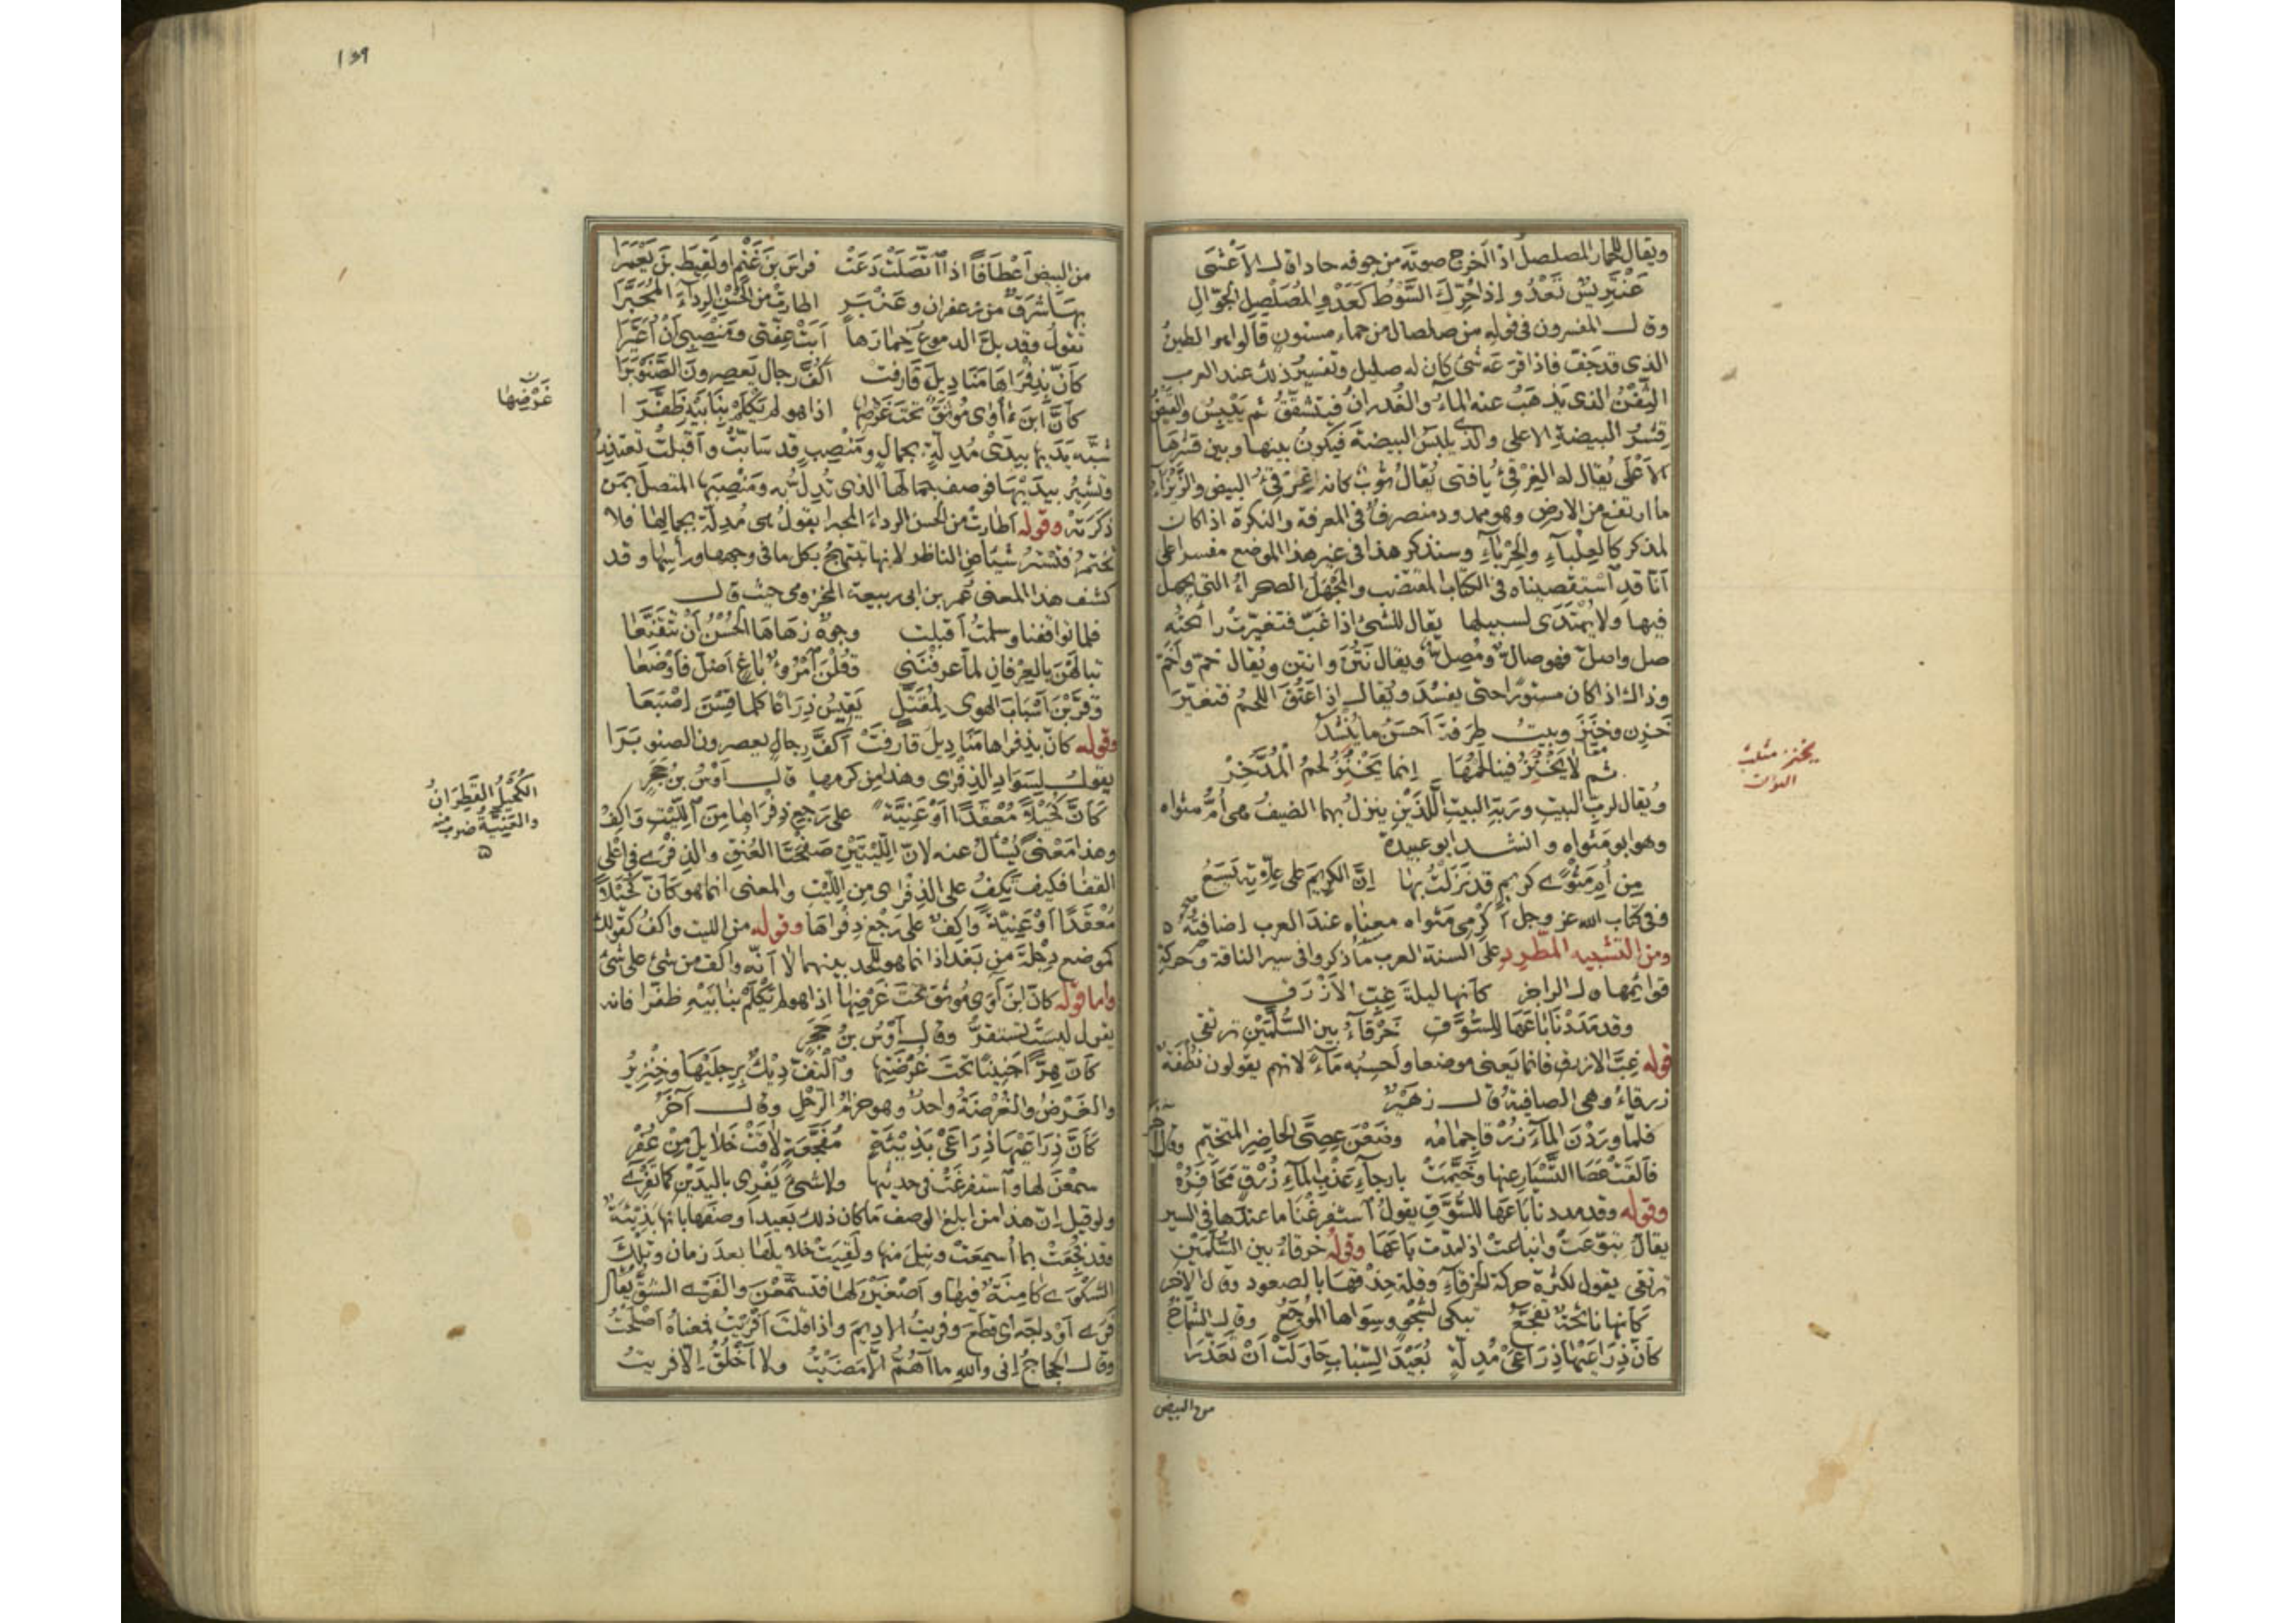 ويقال للحمار المصلصل اذا اخرج صوته من جوفه حادا قال الاعشى
عَنْتَرِيسٌ تَعْدُو اِذا حُرِّكَ السَّوْطُ كَعَدْوِ المُصَلْصِلِ الجَوَّالِ
وقال المفسرون فى قوله من صلصال من حماء مسنون قالوا هو الطين
الذى قد جَفّ فاذا قرعه شئ كان له صليل وتفسير ذلك عند العرب
التِّقْنُ الذى يَذهَبُ عنه الماءُ والغُدرانُ فيتشقّقُ ثم يَيْبَسُ والقَيْضُ
قِشرُ البيضةِ الاعلى والذى يلبَسُ البيضةَ فيكونُ بينها وبين قشرها
الاَعْلَى يُقال له الغِرْقِئُ يا فتى يُقال ثوبٌ كانه غِرْقِئُ البيض والزِّيزاءُ
ما ارتفع من الارض وهو ممدود منصرفٌ فى المعرفة والنكرة اذا كان
لمذكر كالعِلْباءِ والحِرْباءِ وسنذكر هذا فى غير هذا الموضع مفسرا على
اَنّا قد استقصيناه فى الكتاب المقتضب والمَجْهَلُ الصحراءُ التى يجهل
فيها ولا يُهْتَدَى لسبيلها يقال للشئ اذا غَبّ فتغيّرت رائحته
صل واصلّ فهو صالٌّ ومُصِلٌّ ويقال نَتُنَ وانتن ويُقال خمّ واَخَمّ
وذاك اذا كان مستورا حتى يفسُدَ ويُقال اِذا عَتُقَ اللحمُ فتغيّرَ
خَزِن وخَنِزَ وبيتُ طرفةَ اَحسَنُ ما يُنشَدُ
ثم لا يَخْنِزُ فينا لحمُها اِنما يَخْنِزُ لحمُ المُدَّخِرْ
ويُقال لربِّ البيتِ وربّةِ البيتِ اللَّذَيْنِ ينزلُ بهما الضيفُ هى اُمُّ مثواه
وهو ابو مَثواه وانشد ابو عبيدة
مِن اُمِّ مَثْوًى كريمٍ قد نَزَلْتُ بها اِنَّ الكريمَ على عِلّاتِه يَسَعُ
وفى كتاب الله عز وجل اَكْرِمِى مَثواه معناه عندَ العرب اِضافتُه
ومن التشبيه المطّرِدِ على السنة العرب ما ذكروا فى سير الناقة وحركة
قوائمها قال الراجز كأنها ليلةَ غِبِّ الاَزْرَقِ
وقد مَدَدْنَا بَاعَهَا لِلسُّوَّقِ خَرْقَاءُ بين السُّلَّمَيْنِ ترتقى
قوله غِبَّ الازرقِ فانما يَعنى موضعا واَحسِبُه مَاءً لانهم يقولون نُطْفَةٌ
زرقاءُ وهى الصافيةُ قال زهَيرٌ
فلمّا وردْنَ الماءَ زُرْقا جِمامُه وضَعْنَ عِصِىَّ الحاضِرِ المتخيِّم وقال آخر
فاَلقَتْ عَصَا التَّسْيَارِ عنها وخَيَّمَتْ بارجاءِ عَذْبِ الماءِ زُرْقٍ مَحَافِرُهْ
وقوله وقد مددنا باعَها للسُّوَّقِ يقولُ استفرغْنَا ما عندَها فى السير
يقال تبوّعَتْ وانباعَتْ اذا مدّت بَاعَهَا وقولُه خرقاءُ بين السُّلّمَيْنِ
ترتقى يقول لكثرة حركة الخرقاءِ وقلة حِذْقها بالصعود وقال الآخر
كَاَنها نائحةٌ تفجَّعُ تبكى لشجْوٍ وسِوَاها المُوجَعُ وقال الشمّاخُ
كاَنّ ذِرَاعَيْها ذِراعَىْ مُدِلّةٍ بُعَيْدَ السِّبابِ حَاوَلَتْ اَنْ تَعَذَّرَا
من البيض
يخنز مثلث
النون
١٤٩
من البيض اَعْطَافًا اذا اتّصَلَتْ دَعَتْ فِراسَ بنَ غَنْمٍ او لَقِيطَ بنَ يَعْمَرَا
بها شَرَقٌ من زعفرانٍ وعَنْبَرٍ اطارتْ من الحُسْنِ الرِّداءَ المُحَبَّرَا
تقولُ وقد بلّ الدموعُ خِمارَها اَبَتْ عِفّتى ومَنْصِبِى اَنْ اُعَيَّرَا
كاَنّ بِذِفْرَاها مَنَادِيلَ قارفتْ اَكُفَّ رجالٍ يَعصِرونَ الصَّنَوْبَرَا
كأنّ ابنَ آوى مُوثَقٌ تحتَ غَرْضِها اذا هو لم يَكْلِمْ بنابَيْهِ ظَفَّرَا
شبّه يَدَيها بيدَىْ مُدِلّةٍ بجمالٍ ومَنْصِبٍ قد سَابّتْ واَقبلتْ تعتذرُ
وتشيرُ بيدَيْها فوصفَ جمالَها الذى تُدِلُّ به ومَنْصِبَها المتصلَ بمَن
ذكرتْه وقوله اَطارتْ من الحسن الرداءَ المحبرا يقولُ هى مُدِلّةٌ بجمالِها فلا
تختمرُ فتسترُ شيئا عن الناظر لانها تبتهجُ بكل ما فى وجهها وراسِها وقد
كشف هذا المعنى عُمر بن ابى ربيعة المخزومى حيث قال
فلما تواقفنا وسلمتُ اَقبلت وجوهٌ زَهَاهَا الحُسْنُ اَنْ تتقنَّعَا
تبالَهْنَ بالعِرفانِ لما عرفْنَنى وقُلْنَ امرؤٌ باغٍ اَضلَّ فاَوْضَعَا
وقرَّبْنَ اَسْبَابَ الهوى لمُقَتَّلٍ يَقيسُ ذِرَاعًا كلما قِسْنَ اِصْبَعَا
وقوله كاَنّ بذِفراها مَنَاديلَ قارفَتْ اَكُفَّ رجالٍ يعصرون الصنوبَرَا
يقول لِسَوَادِ الذِفْرَى وهذا من كرمها قال اَوْسُ بنُ حَجَرٍ
كَاَنَّ كُحَيْلًا مُعْقَدًا اَوْ عَنِيَّةً على رَجْعِ ذِفْرَاها مِنَ اللِّيْتِ وَاكِفُ
وهذا مَعْنًى يُسْأَلُ عنه لانّ اللِّيتَيْنِ صَفْحَتَا العُنُقِ والذِفْرَى فى اَعْلَى
القفا فكيف يَكِفُ على الذِفْرَى مِن اللِّيْتِ والمعنى انما هو كاَنّ كُحَيْلًا
مُعْقَدًا اَوْ عَنِيَّةً وَاكِفٌ على رَجْعِ ذِفْرَاهَا وقوله من الليت واكف كقولك
كموضعِ دِجْلَةَ مِن بَغْدَاذَ انما هو للحد بينهما لا اَنّه واكف من شئ على شئ
واما قوله كاَنّ ابنَ آوَى مُوثَقٌ تحتَ غَرْضِها اذا هو لم يَكْلِمْ بنابَيْهِ ظفّرَا فانه
يقول ليسَتْ تستقرُّ وقال اَوْسُ بنُ حَجَرٍ
كَاَنّ هِرًّا جَنِيبًا تحتَ غُرْضَتِها والْتفّ دِيكٌ بِرِجلَيْها وخِنْزِيرُ
والغَرْضُ والغُرْضَةُ واحدٌ وهو حِزَامُ الرَّحْلِ وقال آخَرُ
كَاَنَّ ذِرَاعَيْهَا ذِرَاعَىْ بَذِيئَةٍ مُفَجَّعَةٍ لاقَتْ خَلَائِلَ مِنْ عُفْرِ
سمعْنَ لها واستفرغَتْ فى حديثها ولا شئَ يَفْرِى باليدَيْنِ كما تَفْرِى
ولو قيل اِنّ هذا من ابلغِ الوصفِ مَا كان ذلك بَعيدا وصَفَها بانها بَذِيئَةٌ
وقد فُجِعَتْ بما اُسمِعَتْ ونِيلَ منها ولَقِيَتْ خلائلَها بعدَ زمان وتلك
الشكْوَى كامنةٌ فيها واَصْغَيْنَ لها فتسمَّعْنَ والفَرْىُ الشقُّ يُقال
فَرَى اَوْدَاجَه اى قطع وفريتُ الاديمَ واذا قلتَ اَفْرَيْتُ فمعناه اَصْلَحْتُ
وقال الحجاج اِنى والله ما اَهُمُّ اِلّا مَضَيْتُ ولا اَخْلُقُ اِلّا فريتُ
غَرْضِها
الكُحَيلُ القَطِرَانُ
والعَنِيَّةُ ضرب منه